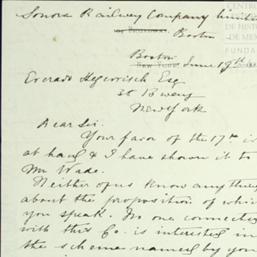 Sonora Railway Company limited
Boston
Boston June 19th
Everado Hegewisch Esq
35 B'way
New York
Dear Sir.
Your favor of the 17th is
at hand & I have shown it to
Mr Wade.
Neither of us know anything
about the proposition of which
you speak. No one connected
with this Co. is interested in
the scheme named by you